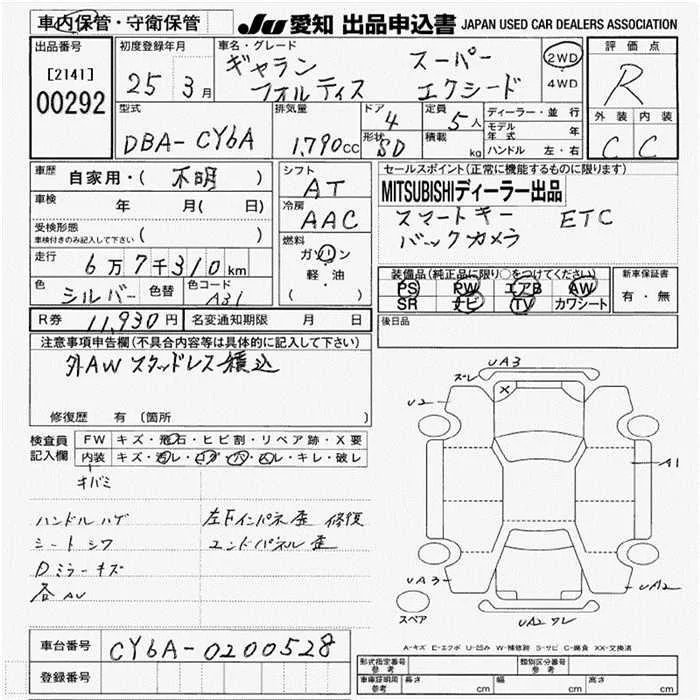 車内保管・守衛保管
JU 愛知 出品申込書 JAPAN USED CAR DEALERS ASSOCIATION
出品番号
[2141]
00292
初度登録年月
25 3月
車名・グレード
ギャラン スーパー
フォルティス エクシード
2WD
4WD
評価点
R
外装 内装
C C
型式
DBA-CY6A
排気量
1,790cc
ドア 4
形状 SD
定員 5人
積載 kg
ディーラー・並行
モデル年式 年
ハンドル 左・右
車歴
自家用・( 不明 )
車検 年 月( 日)
受検形態
車検付きのみ記入して下さい ( )
走行 6万7千310km
色 シルバー 色替 色コード A31
シフト
AT
冷房
AAC
燃料
ガソリン
軽・油
( )
セールスポイント(正常に機能するものに限ります)
MITSUBISHIディーラー出品
スマートキー ETC
バックカメラ
装備品(純正品に限り○をつけてください)
PS PW エアB AW
SR ナビ TV カワシート
新車保証書
有・無
R券 11,930円 名変通知期限 月 日
後日品
注意事項申告欄(不具合内容等は具体的に記入して下さい)
外AW スタッドレス積込
修復歴 有 (箇所 )
検査員
記入欄
FW キズ・飛石・ヒビ割・リペア跡・X要
内装 キズ・汚レ・コゲ・穴・ムレ・キレ・破レ
オバミ
ハンドルハゲ 左Fインパネ歪 修復
シートシワ エンドパネル歪
Dミラーキズ
各AU
ズレ UA3
U2
X
A1
UA3
UA2
UA2ワレ
スペア
車台番号 CY6A-0200528
登録番号
A-キズ E-エクボ U-凹み W-補修跡 S-サビ C-腐食 XX-交換済
形式指定番号
参考
類別区分番号
参考
車庫証明用
参考
長さ cm 幅 cm 高さ cm